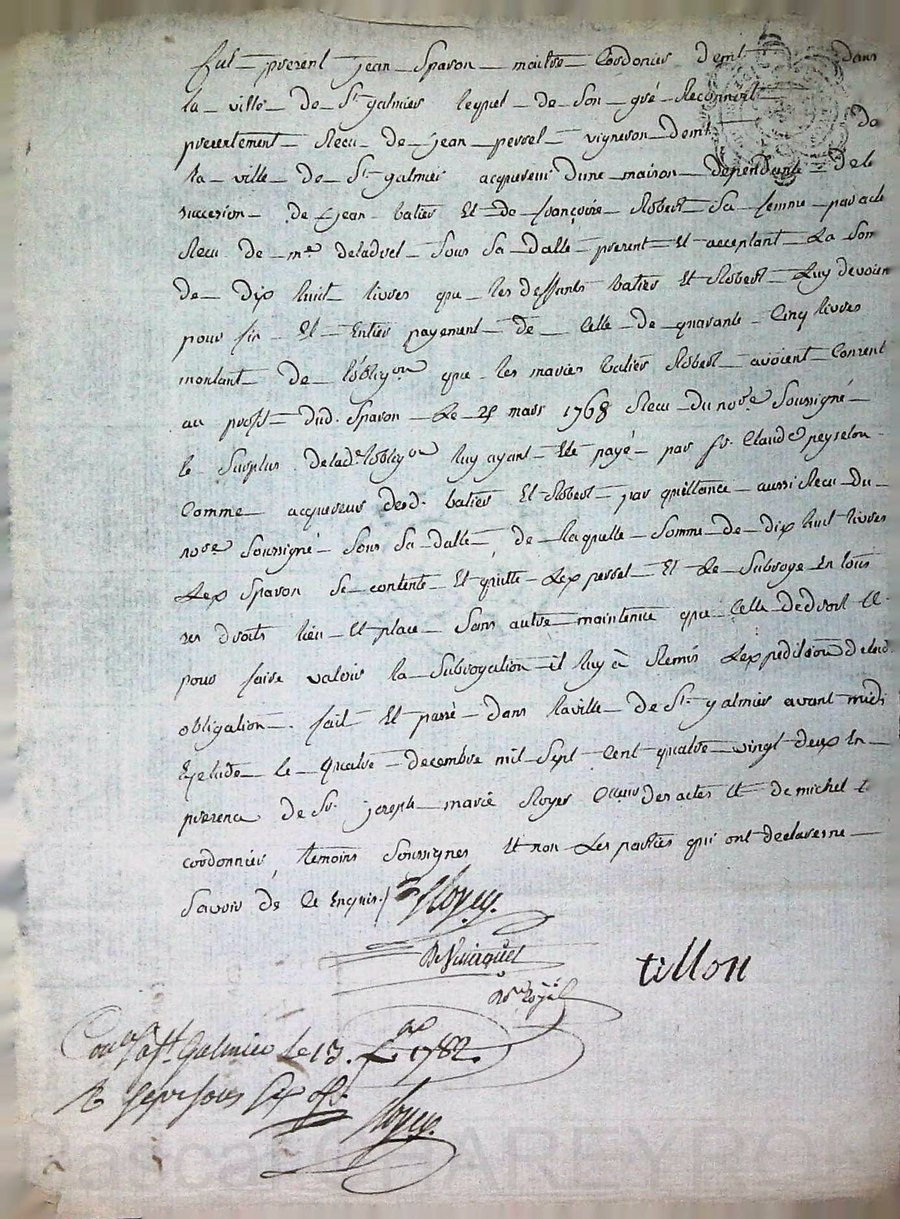 fut présent jean Sparon maitre Cordonier demt dans
la ville de St galmier lequel de Son gré Reconnoit
presentement Recu de jean persel vigneron demt da
la ville de St galmier acquereur dune maison dependante de la
succesion de jean batier Et de françoise Robert Sa femme par acte
Recu de me deladvel Sous Sa datte present Et acceptant La Som
de dix huit livres que les deffunts batier Et Robert Luy devoien
pour fin Et Entier payement de Celle de quarante Cinq livres
montant de l'oblig.on que les mariés batier Robert avoient Consent
au proffit dud. Sparon Le mars 1768 Recu du nore Soussigné
le Surplus de lade lobligon Luy ayant Eté payé par Sr. Claude peyselon
Comme acquereur desd. batier Et Robert par quittance aussi Recu du
nore Soussigné Sous Sa datte, de Laquelle Somme de dix huit livres
Led Sparon Se contente Et quitte Led persel Et Le Subroge En tous
ses droits lieu Et place Sans autre maintenue que Celle de droit Et
pour faire valoir la Subrogation il Luy à Remis Lexpedition de lad.
obligation. fait Et passé dans la ville de St. galmier avant midi
Etude Le quatre decembre mil Sept Cent quatre vingt deux En
presence de Sr. joseph marie Royer des actes Et de michel t
cordonnier, temoins Soussignes Et non Les parties qui ont declare ne
Savoir de Ce Enquis ./.
Royer.
tillon
nre Royal
Con.lé à St. Galmier le 13. Xbre 1782.
R Sept sous Six drs.
Royer.
Pascal CHAREYRON